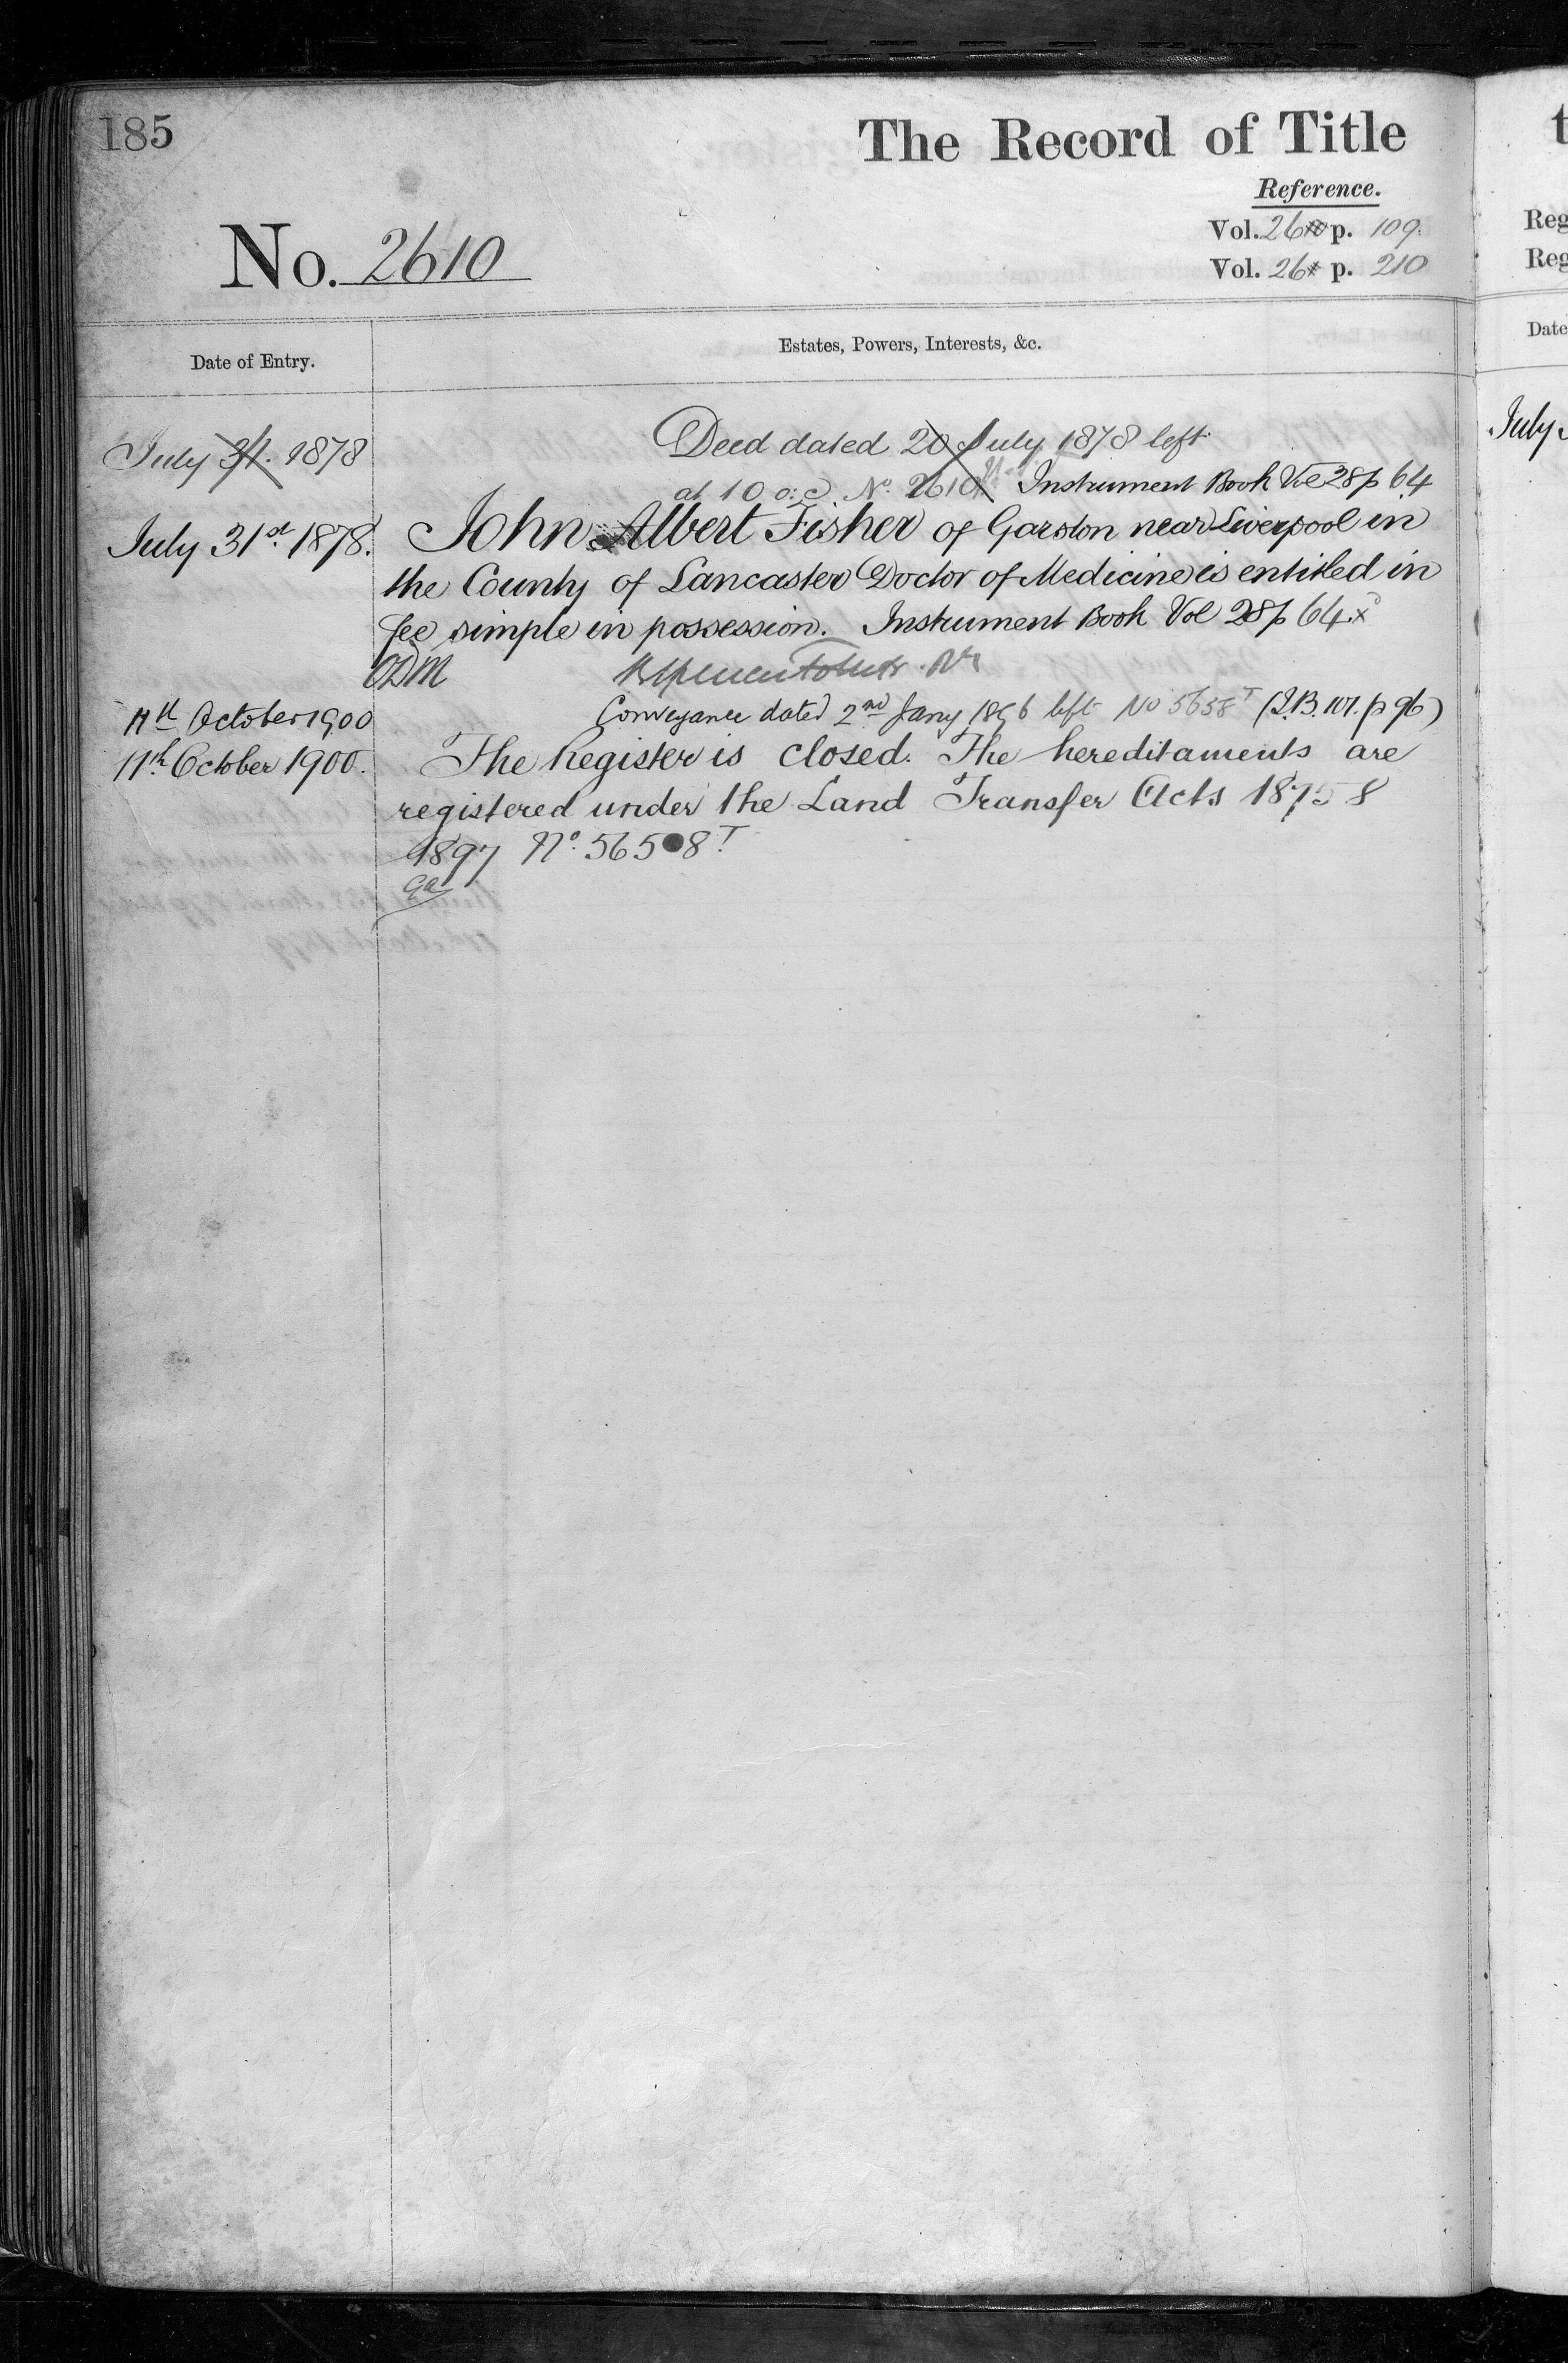 185
The Record of Title
Reference.
No. 2610
Vol. 26 p. 109
Vol. 26 p. 210
Date of Entry.
Estates, Powers, Interests, &c.
July 31. 1878
Deed dated 20 July 1878 left
at 10 o.c. No. 2610 Instrument Book Vol 28 p 64
July 31st 1878.
John Albert Fisher of Garston near Liverpool in
the County of Lancaster Doctor of Medicine is entitled in
fee simple in possession. Instrument Book Vol 28 p 64
ODM
11th October 1900
Conveyance dated 2nd Jany 1896 left No 5658T (I.B. 101. p 96)
11th October 1900.
The Register is closed. The hereditaments are
registered under the Land Transfer Acts 1875 &
1897 No. 5658T
t
Reg
Reg
Date
July